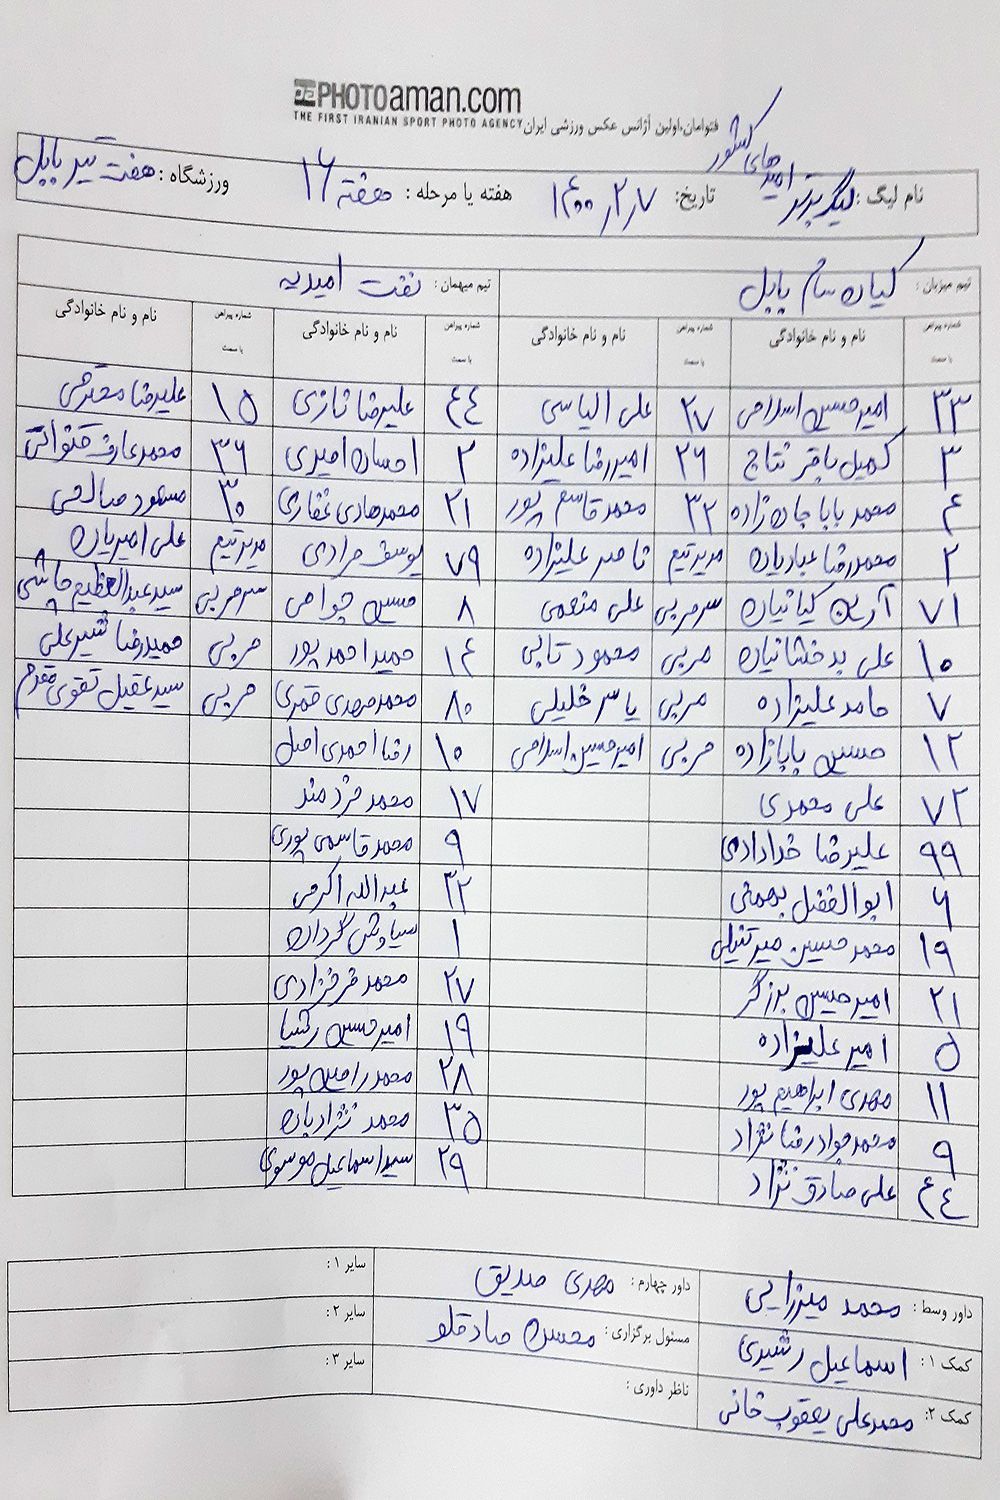 PHOTOaman.com
THE FIRST IRANIAN SPORT PHOTO AGENCY
فتوامان،اولین آژانس عکس ورزشی ایران
نام لیگ : لیگ برتر امیدهای کشور تاریخ: ۱۴۰۰٫۲٫۷ هفته یا مرحله : هفته ۱۶ ورزشگاه : هفت تیر بابل
تیم میزبان : کیان سام بابل تیم میهمان : نفت امیدیه
شماره پیراهن یا سمت نام و نام خانوادگی شماره پیراهن یا سمت نام و نام خانوادگی شماره پیراهن یا سمت نام و نام خانوادگی شماره پیراهن یا سمت نام و نام خانوادگی
۳۳ امیرحسین اسلامی ۲۷ علی الیاسی ۴۴ علیرضا نازی ۱۵ علیرضا محترمی
۳ کمیل باقر نتاج ۲۶ امیررضا علیزاده ۲ احسان امیری ۳۶ محمدعارف قنواتی
۴ محمد باباجان زاده ۳۲ محمد قاسم پور ۲۱ محمدهادی غفاری ۳۰ مسعود صالحی
۲ محمدرضا عبادیان مدیرتیم ناصر علیزاده ۷۹ یوسف مرادی مدیرتیم علی امیریان
۷۱ آرین کیانیان سرمربی علی منعمی ۸ حسین چواحی سرمربی سیدعبدالعظیم چاشمی
۱۰ علی بدخشانیان مربی محمود تابی ۱۴ حمید احمدپور مربی حمیدرضا شیرعلی
۷ حامد علیزاده مربی یاسر خلیلی ۸۰ محمدمهدی قمری مربی سیدعقیل تقوی مقدم
۱۲ حسین باباز‌اده مربی امیرحسین اسلامی ۱۰ رضا احمدی اصل
۷۲ علی محمدی ۱۷ محمد خردمند
۹۹ علیرضا خدادادی ۹ محمد قاسمی پوری
۶ ابوالفضل بهمنی ۳۲ عبدالله اکرمی
۱۹ محمدحسین میرتتیلی ۱ سیاوش گردان
۲۱ امیرحسین برزگر ۲۷ محمد فرفرادی
۵ امیر علیزاده ۱۹ امیرحسین رکنیا
۱۱ مهدی ابراهیم پور ۲۸ محمد رامین پور
۹ محمدجواد رضانژاد ۳۵ محمد نژادیان
۴۴ علی صادق نژاد ۲۹ سیداسماعیل موسوی
داور وسط : محمد میرزایی داور چهارم : مهدی صدیق سایر ۱ :
کمک ۱ : اسماعیل رشیدی مسئول برگزاری : محسن صادقلو سایر ۲ :
کمک ۲: محمدعلی یعقوب خانی ناظر داوری : سایر ۳ :